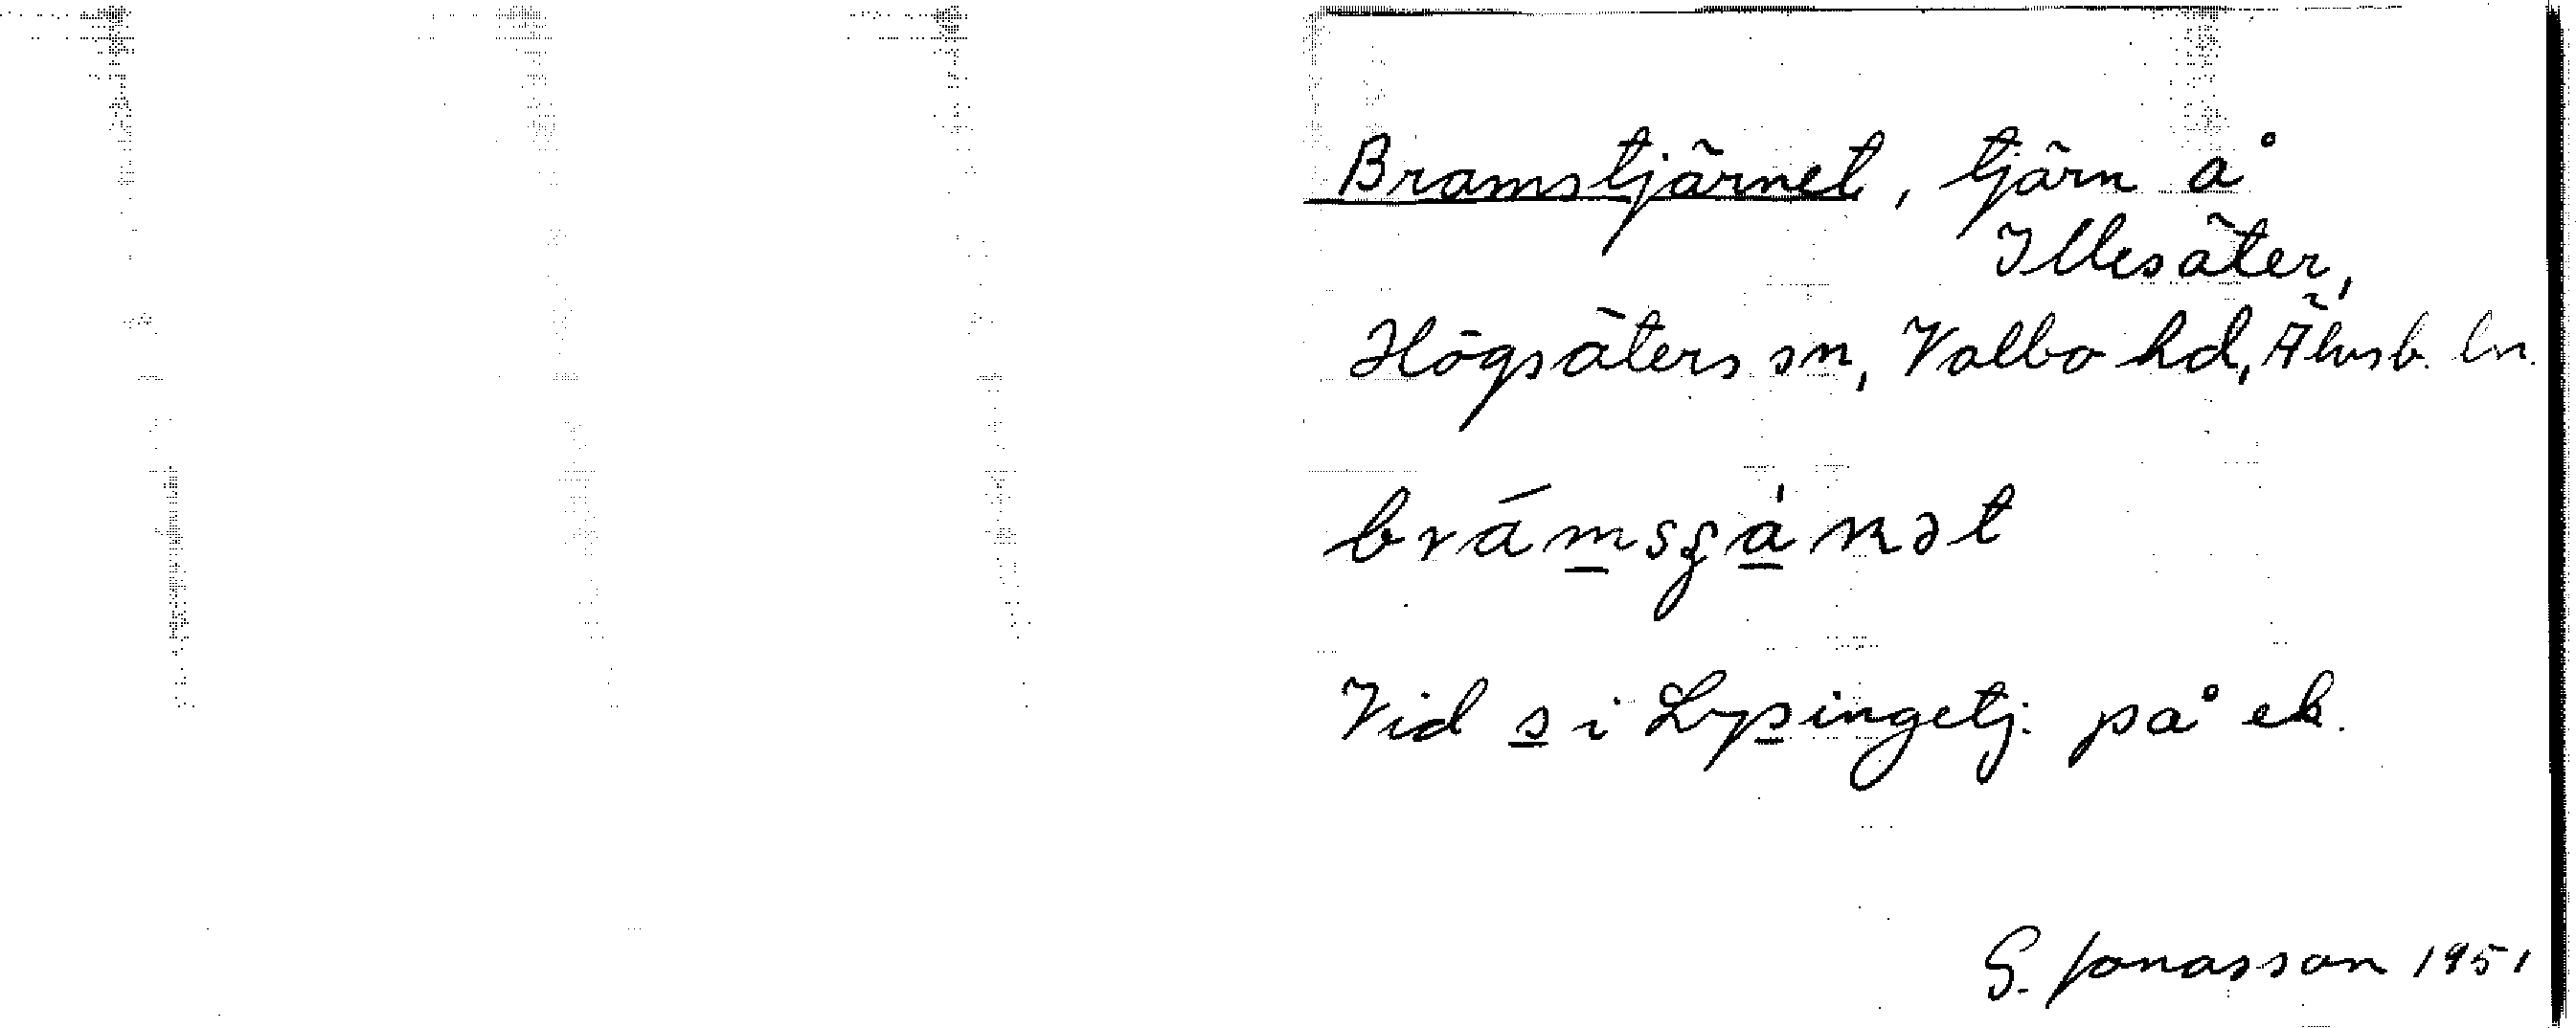 Bramstjärnet, tjärn å
Illesäter,
Högsäters sn, Valbo hd, Älvsb. ln.
Vid s i Lysingetj. på ek.
G. Jonasson 1951